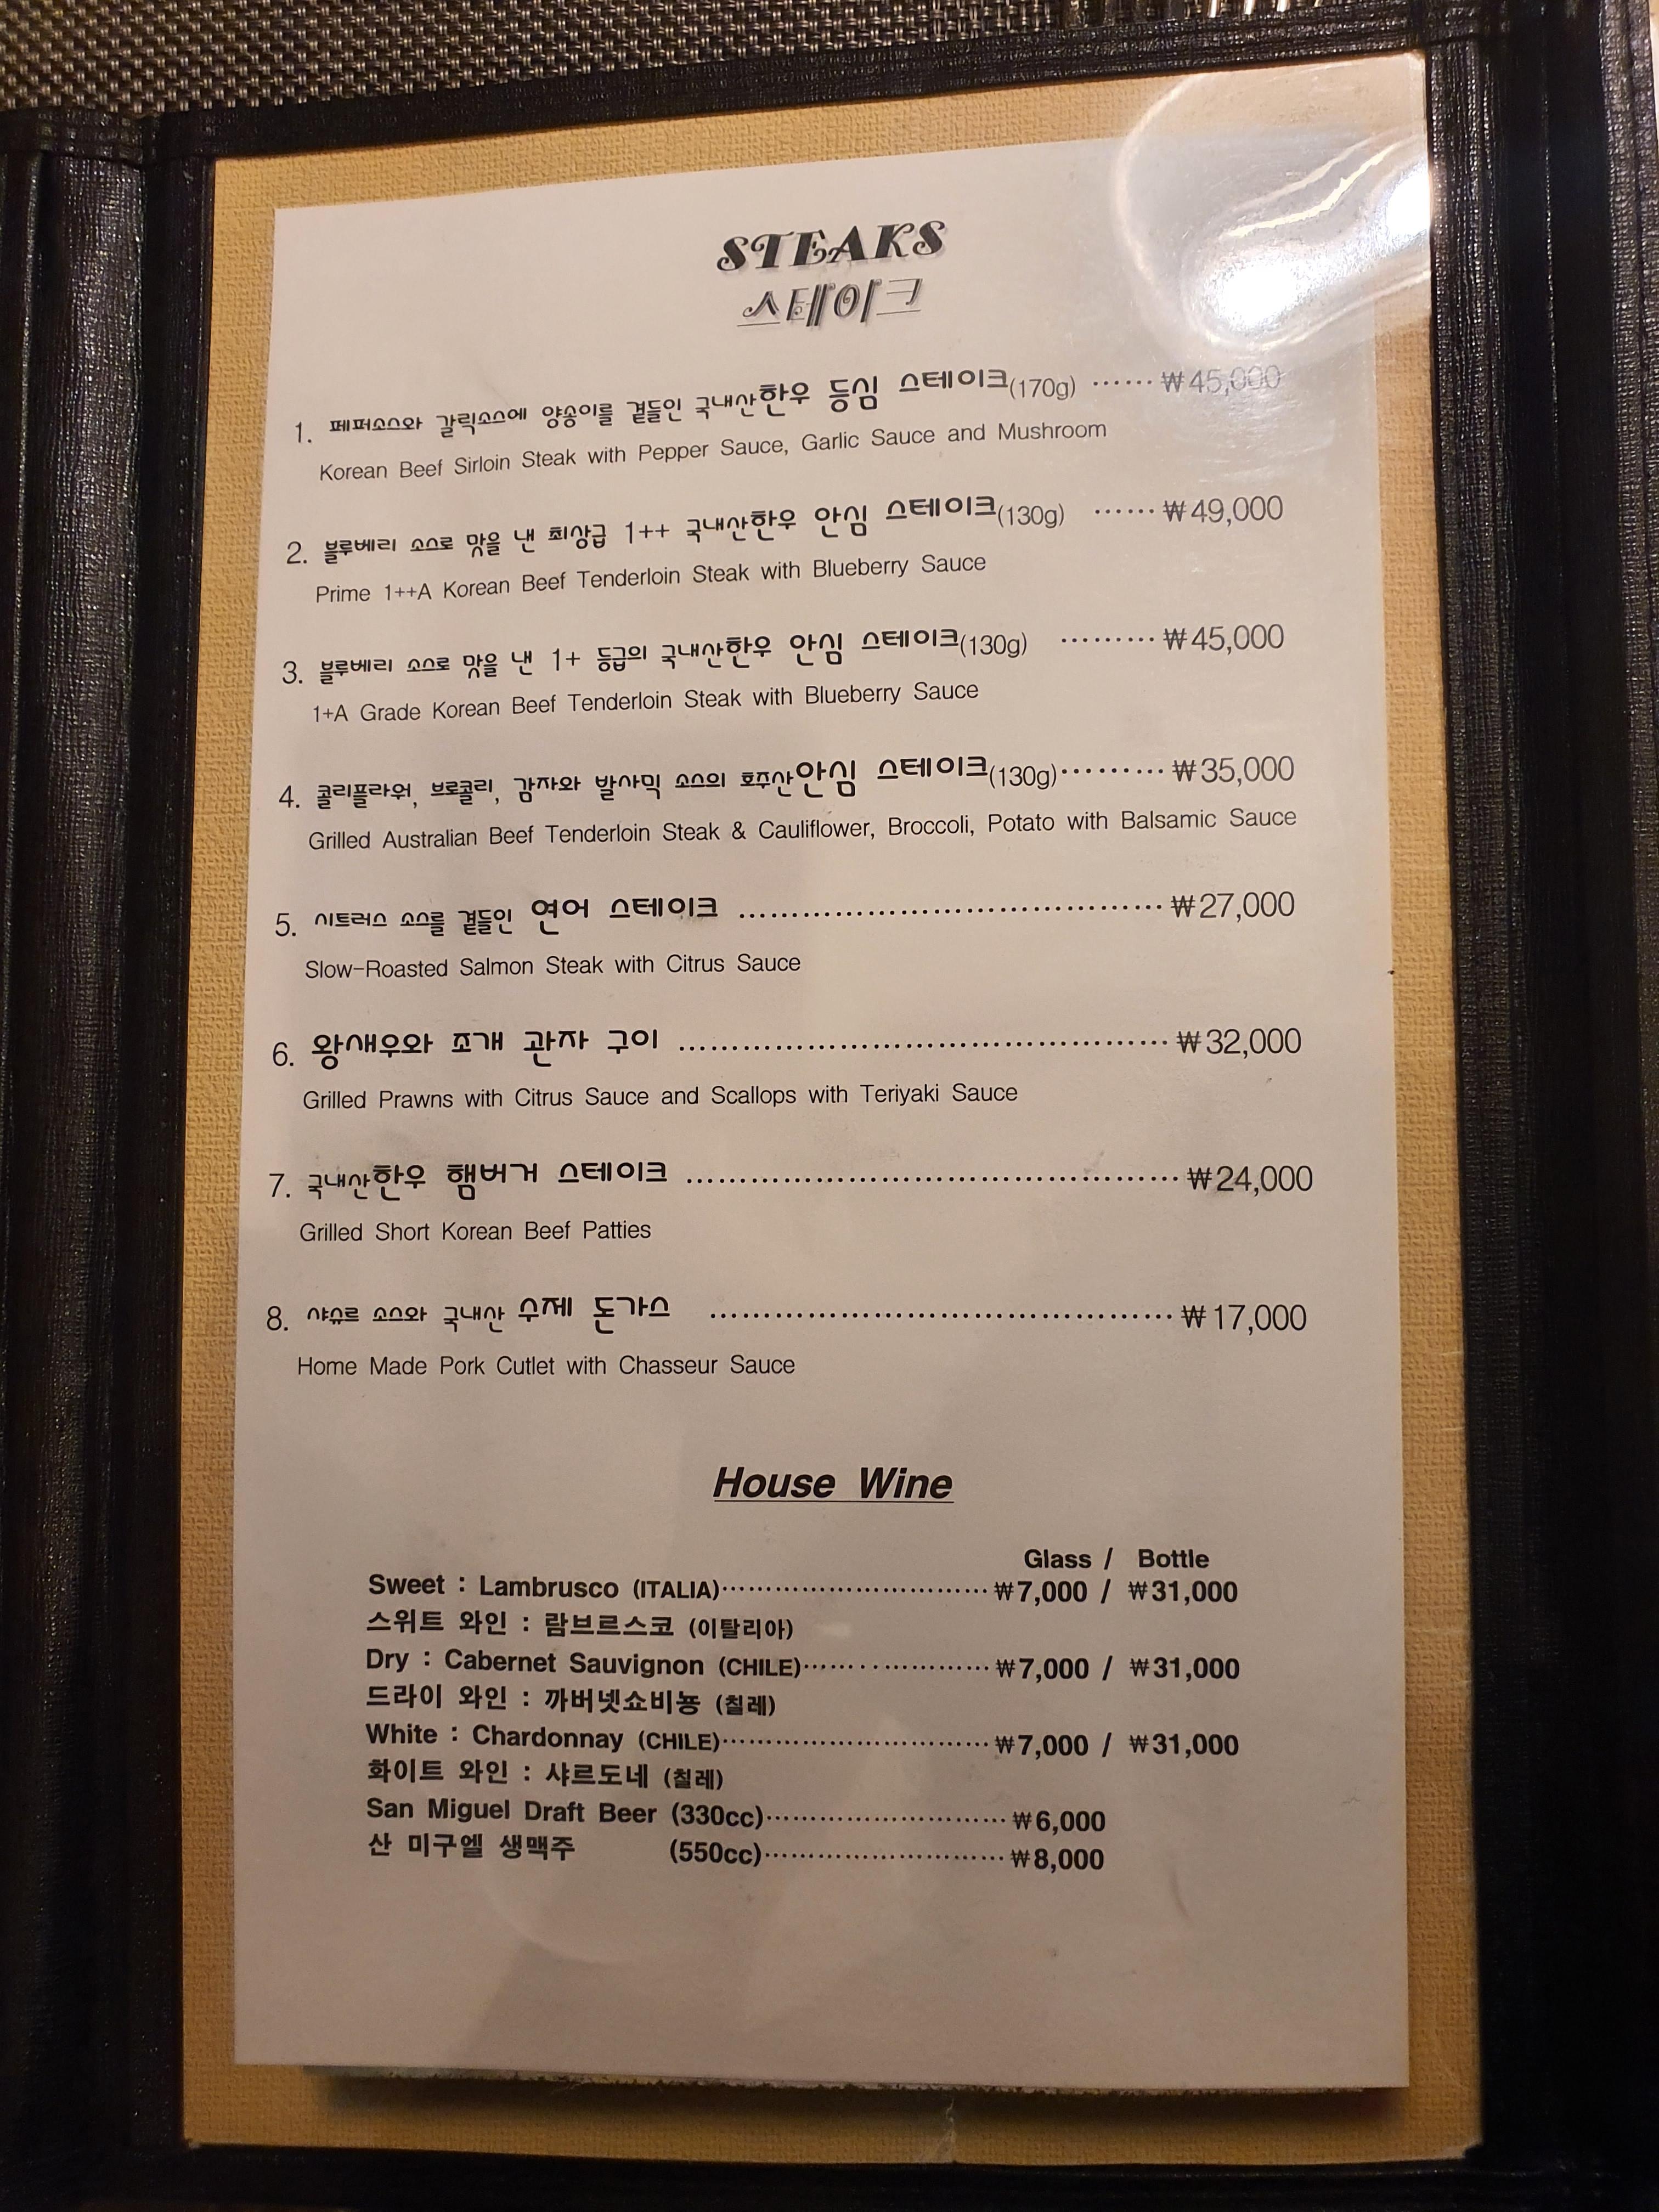 STEAKS
스테이크
1. 페퍼소스와 갈릭소스에 양송이를 곁들인 국내산한우 등심 스테이크(170g) ······ ₩45,000
Korean Beef Sirloin Steak with Pepper Sauce, Garlic Sauce and Mushroom
2. 블루베리 소스로 맛을 낸 최상급 1++ 국내산한우 안심 스테이크(130g) ······ ₩49,000
Prime 1++A Korean Beef Tenderloin Steak with Blueberry Sauce
3. 블루베리 소스로 맛을 낸 1+ 등급의 국내산한우 안심 스테이크(130g) ········· ₩45,000
1+A Grade Korean Beef Tenderloin Steak with Blueberry Sauce
4. 콜리플라워, 브로콜리, 감자와 발사믹 소스의 호주산안심 스테이크(130g)········· ₩35,000
Grilled Australian Beef Tenderloin Steak & Cauliflower, Broccoli, Potato with Balsamic Sauce
5. 시트러스 소스를 곁들인 연어 스테이크 ······································· ₩27,000
Slow-Roasted Salmon Steak with Citrus Sauce
6. 왕새우와 조개 관자 구이 ············································· ₩32,000
Grilled Prawns with Citrus Sauce and Scallops with Teriyaki Sauce
7. 국내산한우 햄버거 스테이크 ············································· ₩24,000
Grilled Short Korean Beef Patties
8. 샤슈르 소스와 국내산 수제 돈가스 ·········································· ₩17,000
Home Made Pork Cutlet with Chasseur Sauce
House Wine
Glass / Bottle
Sweet : Lambrusco (ITALIA)····························· ₩7,000 / ₩31,000
스위트 와인 : 람브르스코 (이탈리아)
Dry : Cabernet Sauvignon (CHILE)···················· ₩7,000 / ₩31,000
드라이 와인 : 까버넷쇼비뇽 (칠레)
White : Chardonnay (CHILE)····························· ₩7,000 / ₩31,000
화이트 와인 : 샤르도네 (칠레)
San Miguel Draft Beer (330cc)·························· ₩6,000
산 미구엘 생맥주 (550cc)·························· ₩8,000